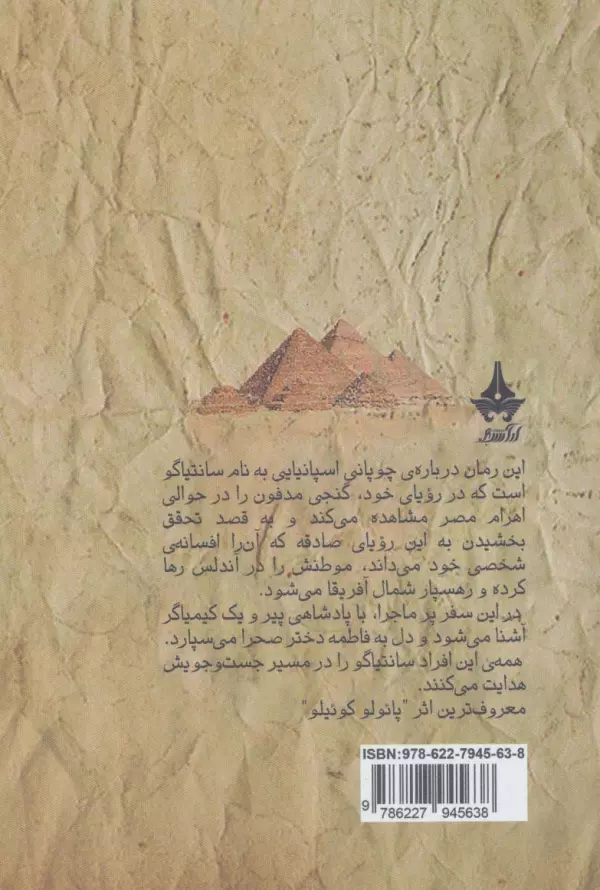 این رمان درباره‌ی چوپانی اسپانیایی به نام سانتیاگو
است که در رؤیای خود، گنجی مدفون را در حوالی
اهرام مصر مشاهده می‌کند و به قصد تحقق
بخشیدن به این رؤیای صادقه که آن‌را افسانه‌ی
شخصی خود می‌داند، موطنش را در آندلس رها
کرده و رهسپار شمال آفریقا می‌شود.
در این سفر پر ماجرا، با پادشاهی پیر و یک کیمیاگر
آشنا می‌شود و دل به فاطمه دختر صحرا می‌سپارد.
همه‌ی این افراد سانتیاگو را در مسیر جست‌وجویش
هدایت می‌کنند.
معروف‌ترین اثر "پائولو کوئیلو"
ISBN:978-622-7945-63-8
9 786227 945638